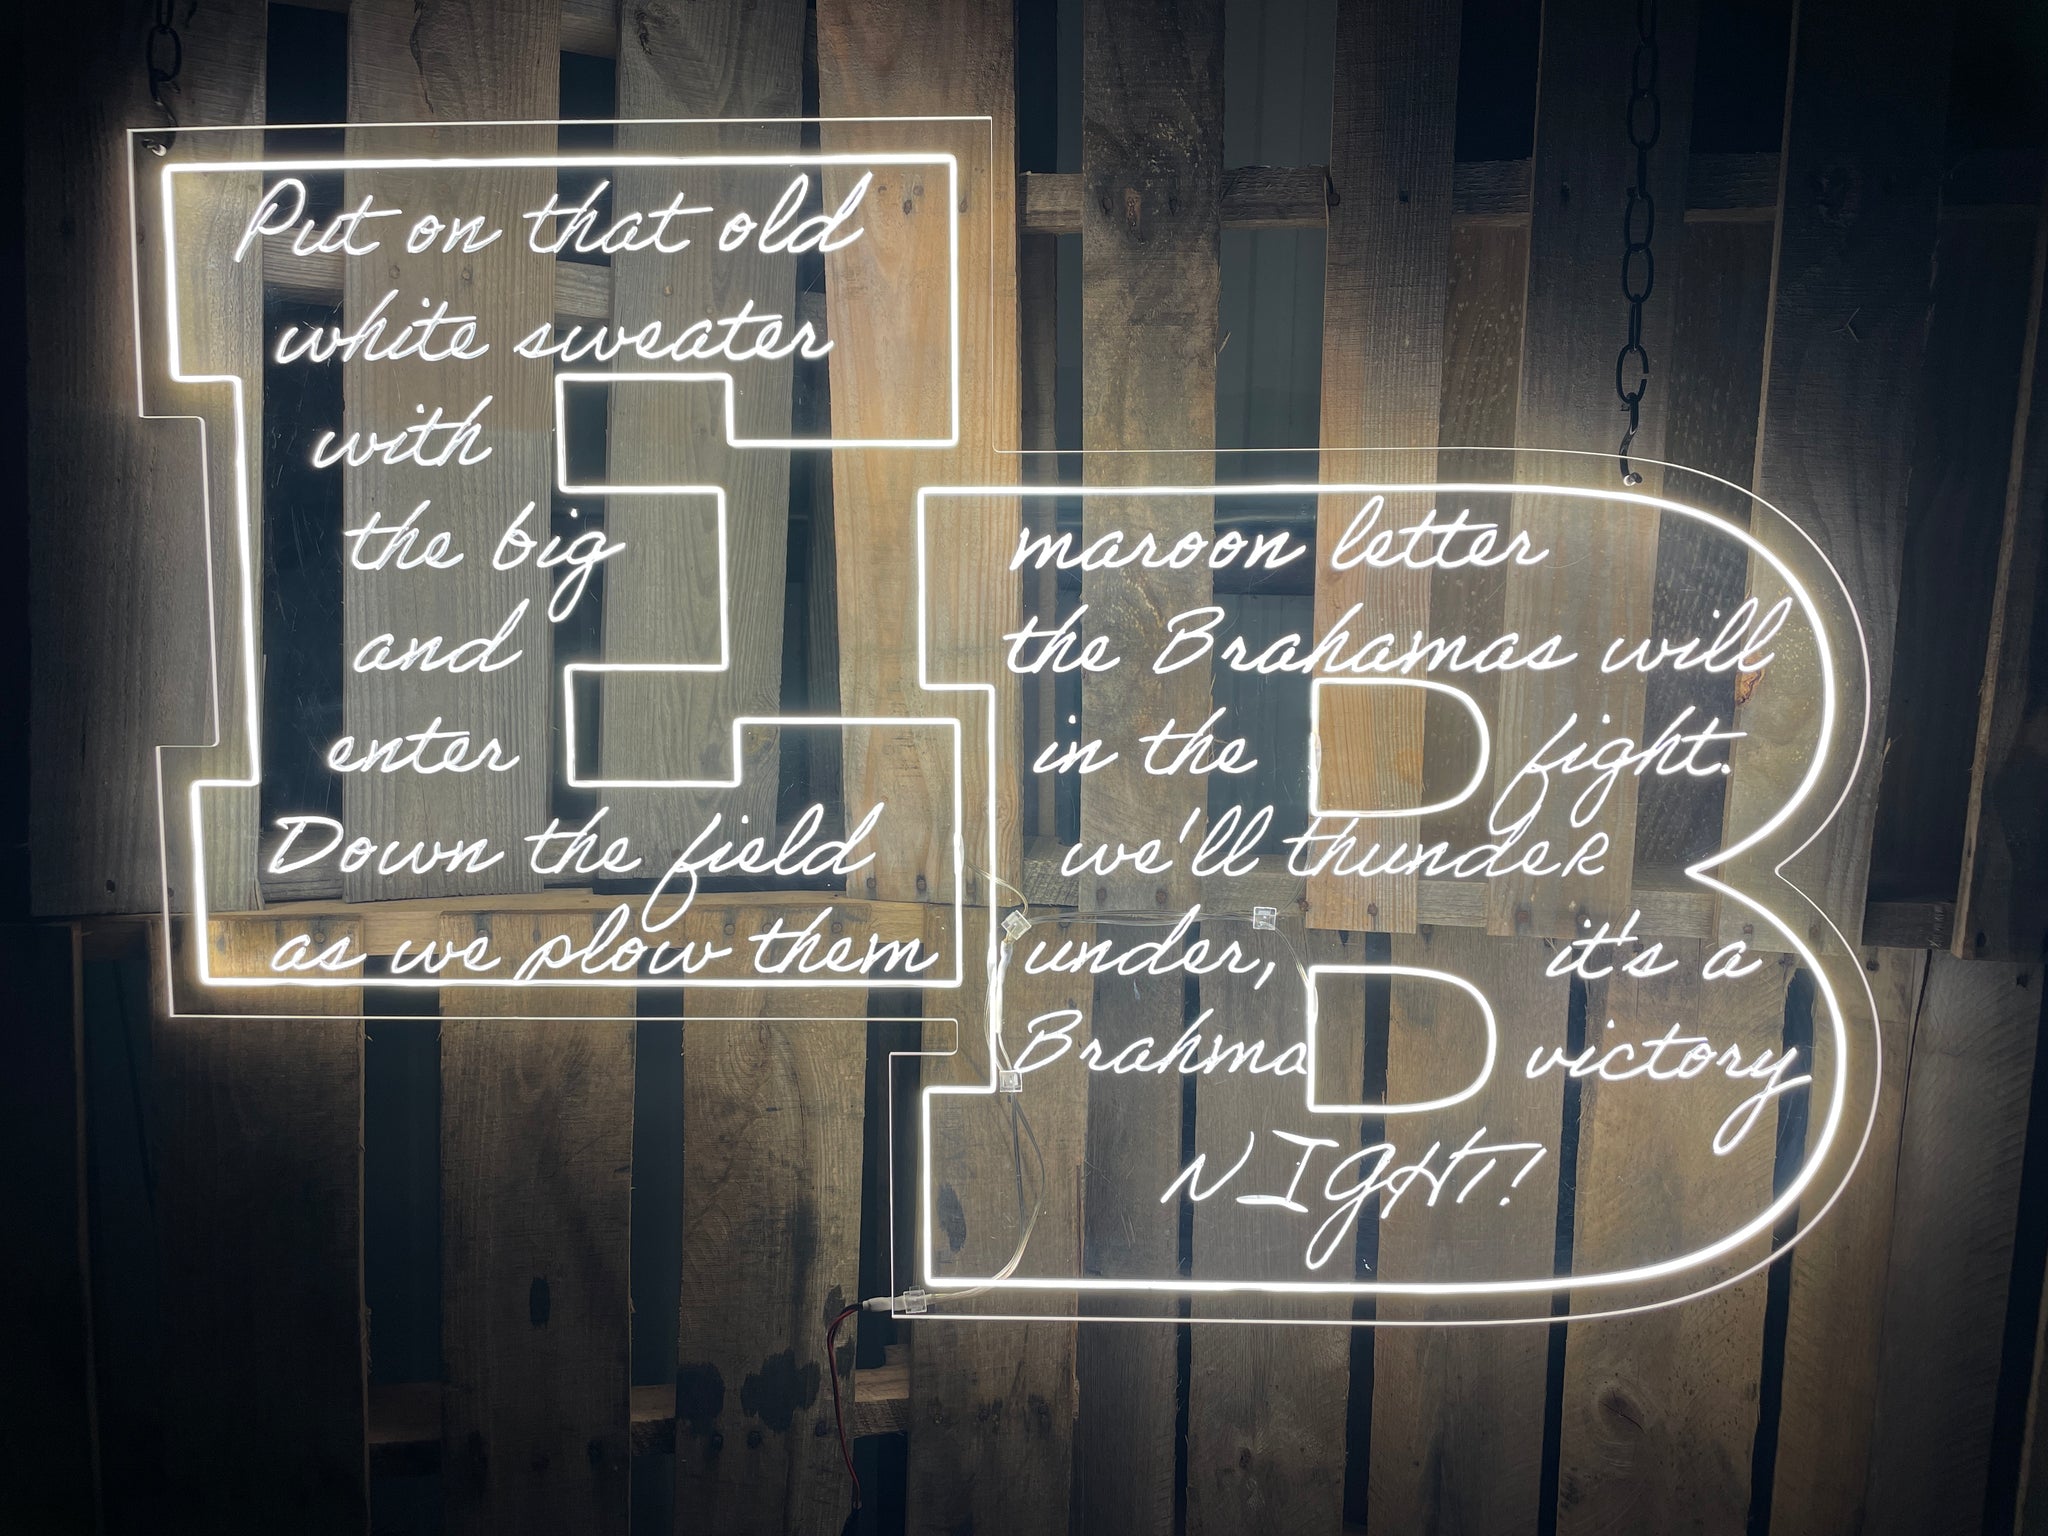 EB
Put on that old
white sweater
with
the big maroon letter
and the Brahamas will
enter in the fight.
Down the field we'll thundeR
as we plow them under, it's a
Brahma victory
NIGHT!